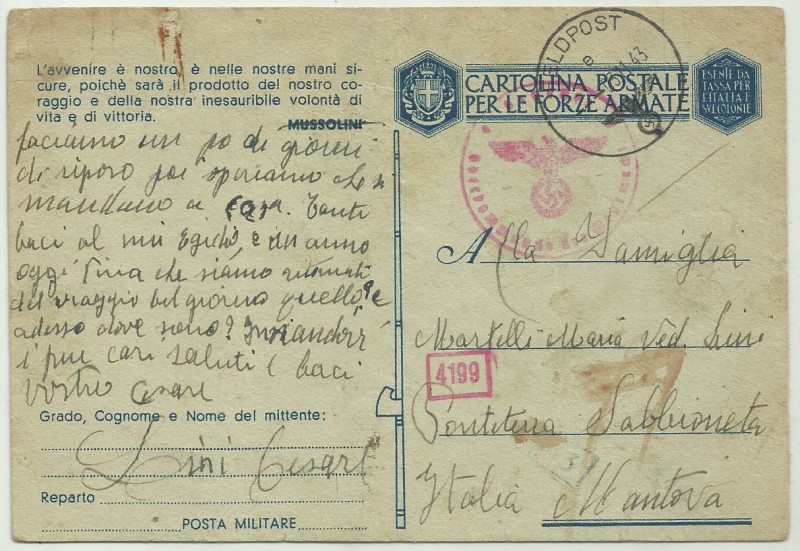 L'avvenire è nostro, è nelle nostre mani si-
cure, poichè sarà il prodotto del nostro co-
raggio e della nostra inesauribile volontà di
vita e di vittoria.
MUSSOLINI
facciamo un po di giorni
di riporo poi speriamo che si
mandano a casa. Tanti
baci al mio Egidio, e un anno
oggi Pina che siamo ritornati
del viaggio bel giorno quello, e
adesso dove sono?
i piu cari saluti e baci
vostro Cesare
Grado, Cognome e Nome del mittente:
Lini Cesare
Reparto
POSTA MILITARE
CARTOLINA POSTALE
PER LE FORZE ARMATE
ESENTE DA
TASSA PER
L'ITALIA E
LE COLONIE
FELDPOST
e
43
Alla Famiglia
Martelli Maria Ved. Lini
4199
Ponteterra Sabbioneta
Italia Mantova